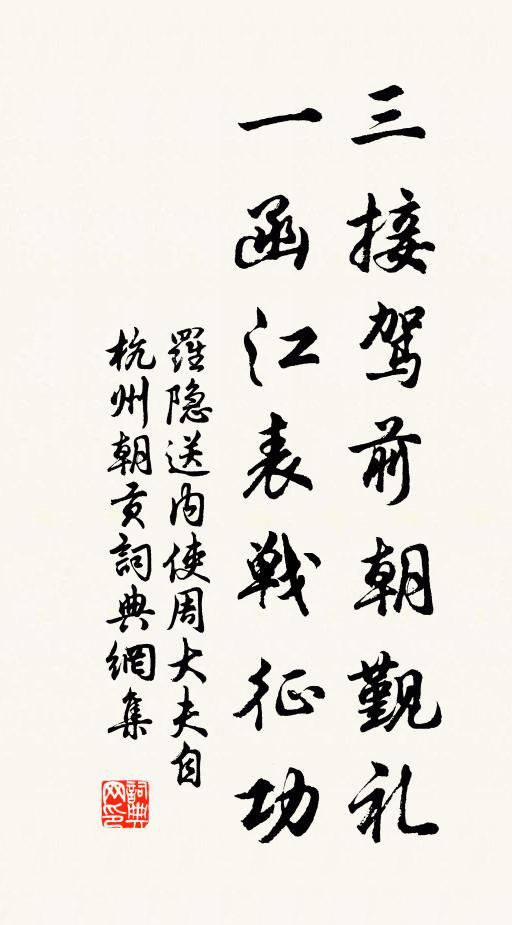 三接驾前朝覲礼
一函江表戰征功
羅隐送内使周大夫自
杭州朝贡詞典網集
詞典网印